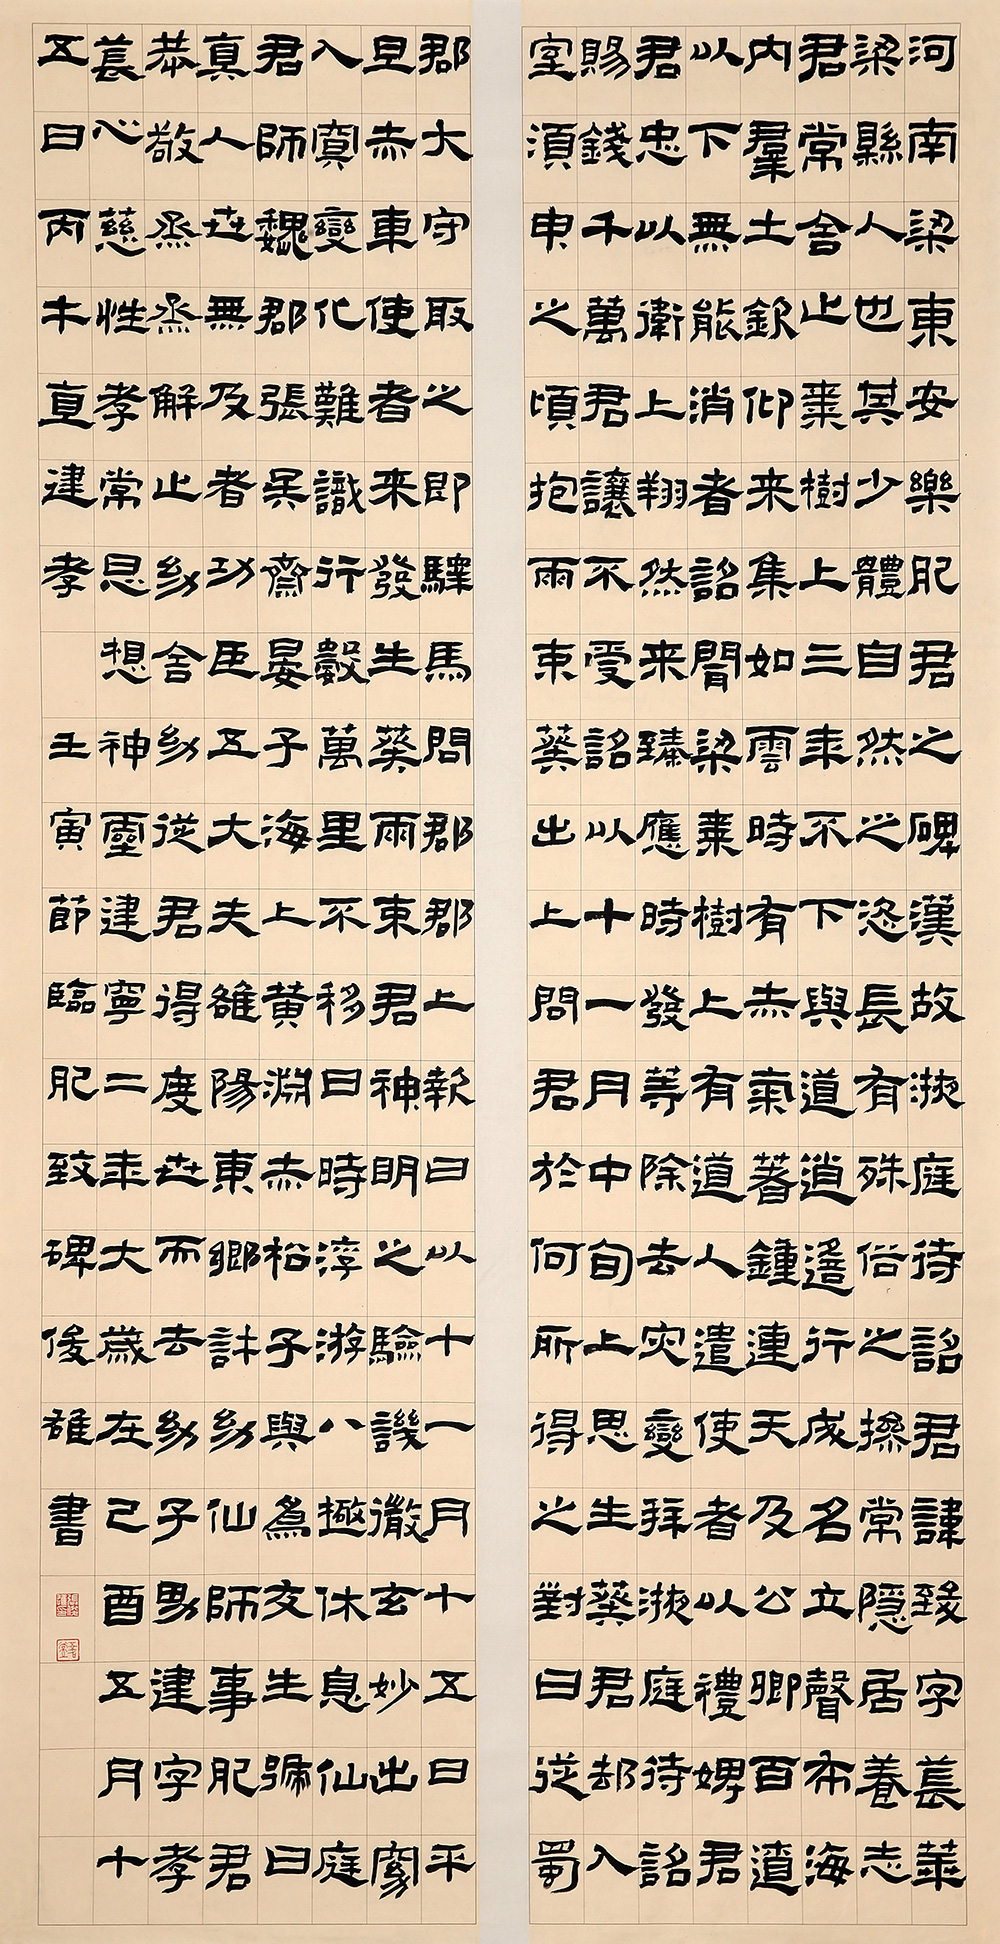 河南梁東安樂肥君之碑漢故掖庭待詔君諱致字萇華
梁縣人也其少體自然之恣長有殊俗之操常隱居養志
君常舍止棗樹上三年不下與道逍遙行成名立聲布海
内羣士欽仰来集如雲時有赤氣著鍾連天及公卿百遼
以下無能消者詔聞梁棗樹上有道人遣使者以禮娉君
君忠以衛上翔然来臻應時發筭除去灾變拜掖庭待詔
賜錢千萬君讓不受詔以十一月中旬上思生葵君却入
室須臾之頃抱兩束葵出上問君於何所得之對曰從蜀
郡大守取之即驛馬問郡郡上報曰以十一月十五日平
旦赤車使者来發生葵兩束君神明之驗譏徹玄妙出窈
入冥變化難識行數萬里不移日時浮游八極休息仙庭
君師魏郡張吳齋晏子海上黃淵赤松子與為友生號曰
真人世無及者功臣五大夫雒陽東鄉許幼仙師事肥君
恭敬烝烝解止幼舍幼從君得度世而去幼子男建字孝
萇心慈性孝常思想神靈建寧二年大歲在己酉五月十
五日丙午直建孝 壬寅節臨肥致碑俊雄書